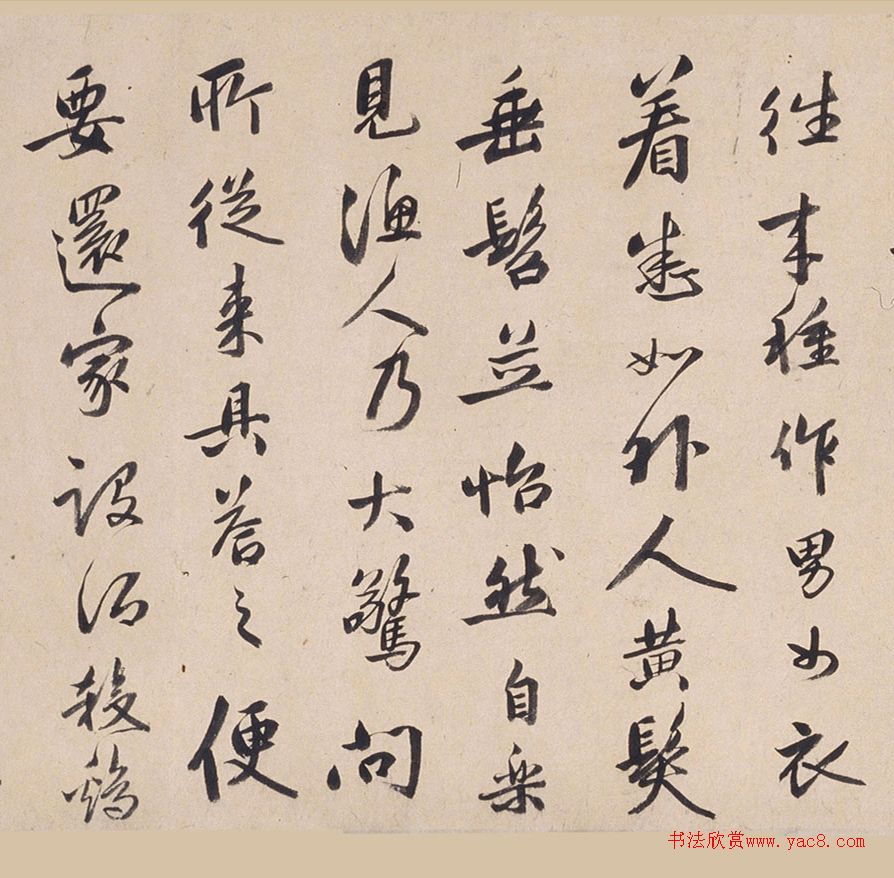 往来種作男女衣
着悉如外人黄髮
垂髫並怡然自樂
見漁人乃大驚問
所從来具答之便
要還家設酒殺雞
书法欣赏www.yac8.com